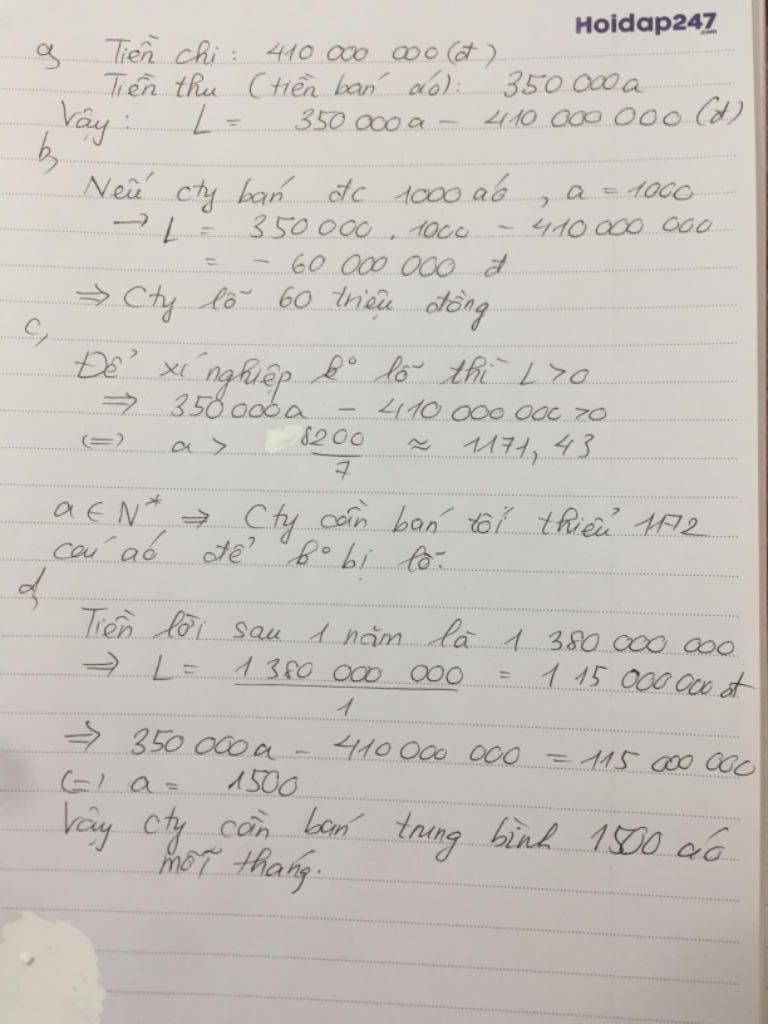 Hoidap247.com
a, Tiền chi: 410 000 000 (đ)
Tiền thu (tiền bán áo): 350 000a
Vậy: L = 350 000a - 410 000 000 (đ)
b,
Nếu cty bán đc 1000 áo, a = 1000
→ L = 350 000 . 1000 - 410 000 000
= - 60 000 000 đ
⇒ Cty lỗ 60 triệu đồng
c,
Để xí nghiệp ko lỗ thì L > 0
⇒ 350 000a - 410 000 000 > 0
(=) a > 8200/7 ≈ 1171,43
a ∈ N* ⇒ Cty cần bán tối thiểu 1172
cái áo để ko bị lỗ.
d,
Tiền lời sau 1 năm là 1 380 000 000
⇒ L = 1 380 000 000/1 = 1 15 000 000 đ
⇒ 350 000a - 410 000 000 = 115 000 000
(=) a = 1500
Vậy cty cần bán trung bình 1500 áo
mỗi tháng.